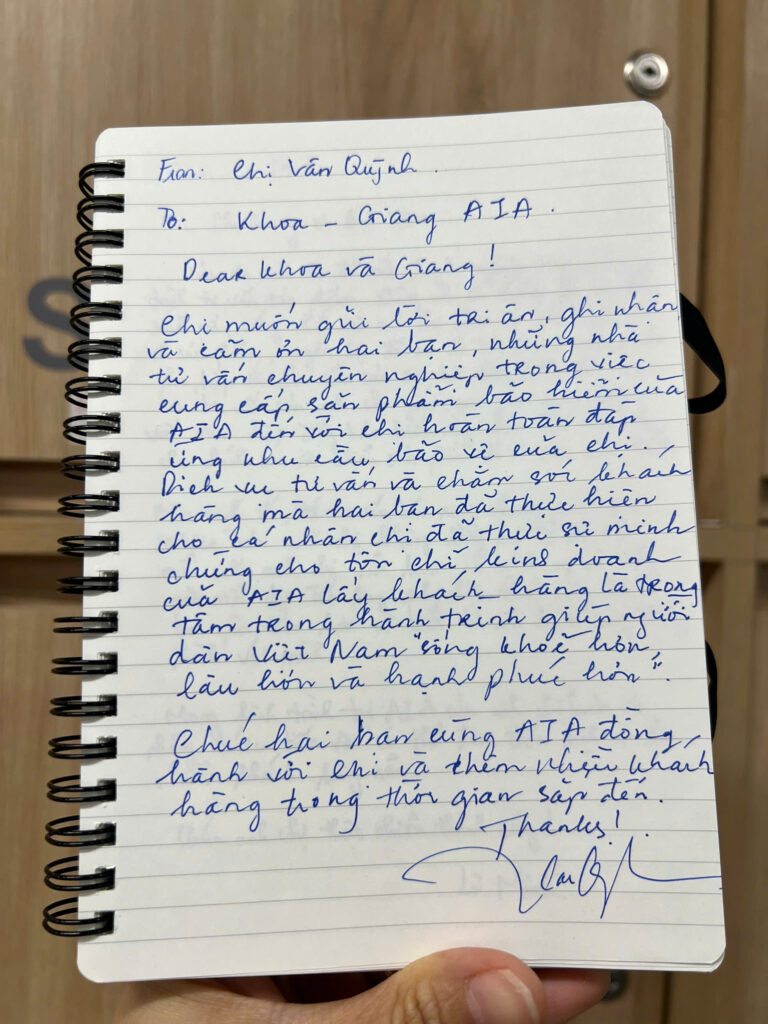 From: Chị Vân Quỳnh.
To: Khoa - Giang AIA.
Dear Khoa và Giang!
Chị muốn gửi lời tri ân, ghi nhận
và cảm ơn hai bạn, những nhà
tư vấn chuyên nghiệp trong việc
cung cấp sản phẩm bảo hiểm của
AIA đến với chị hoàn toàn đáp
ứng nhu cầu bảo vệ của chị.
Dịch vụ tư vấn và chăm sóc khách
hàng mà hai bạn đã thực hiện
cho cá nhân chị đã thực sự minh
chứng cho tôn chỉ kinh doanh
của AIA lấy khách hàng là trọng
tâm trong hành trình giúp người
dân Việt Nam "sống khỏe hơn,
lâu hơn và hạnh phúc hơn".
Chúc hai bạn cùng AIA đồng
hành với chị và thêm nhiều khách
hàng trong thời gian sắp đến.
Thanks!
S